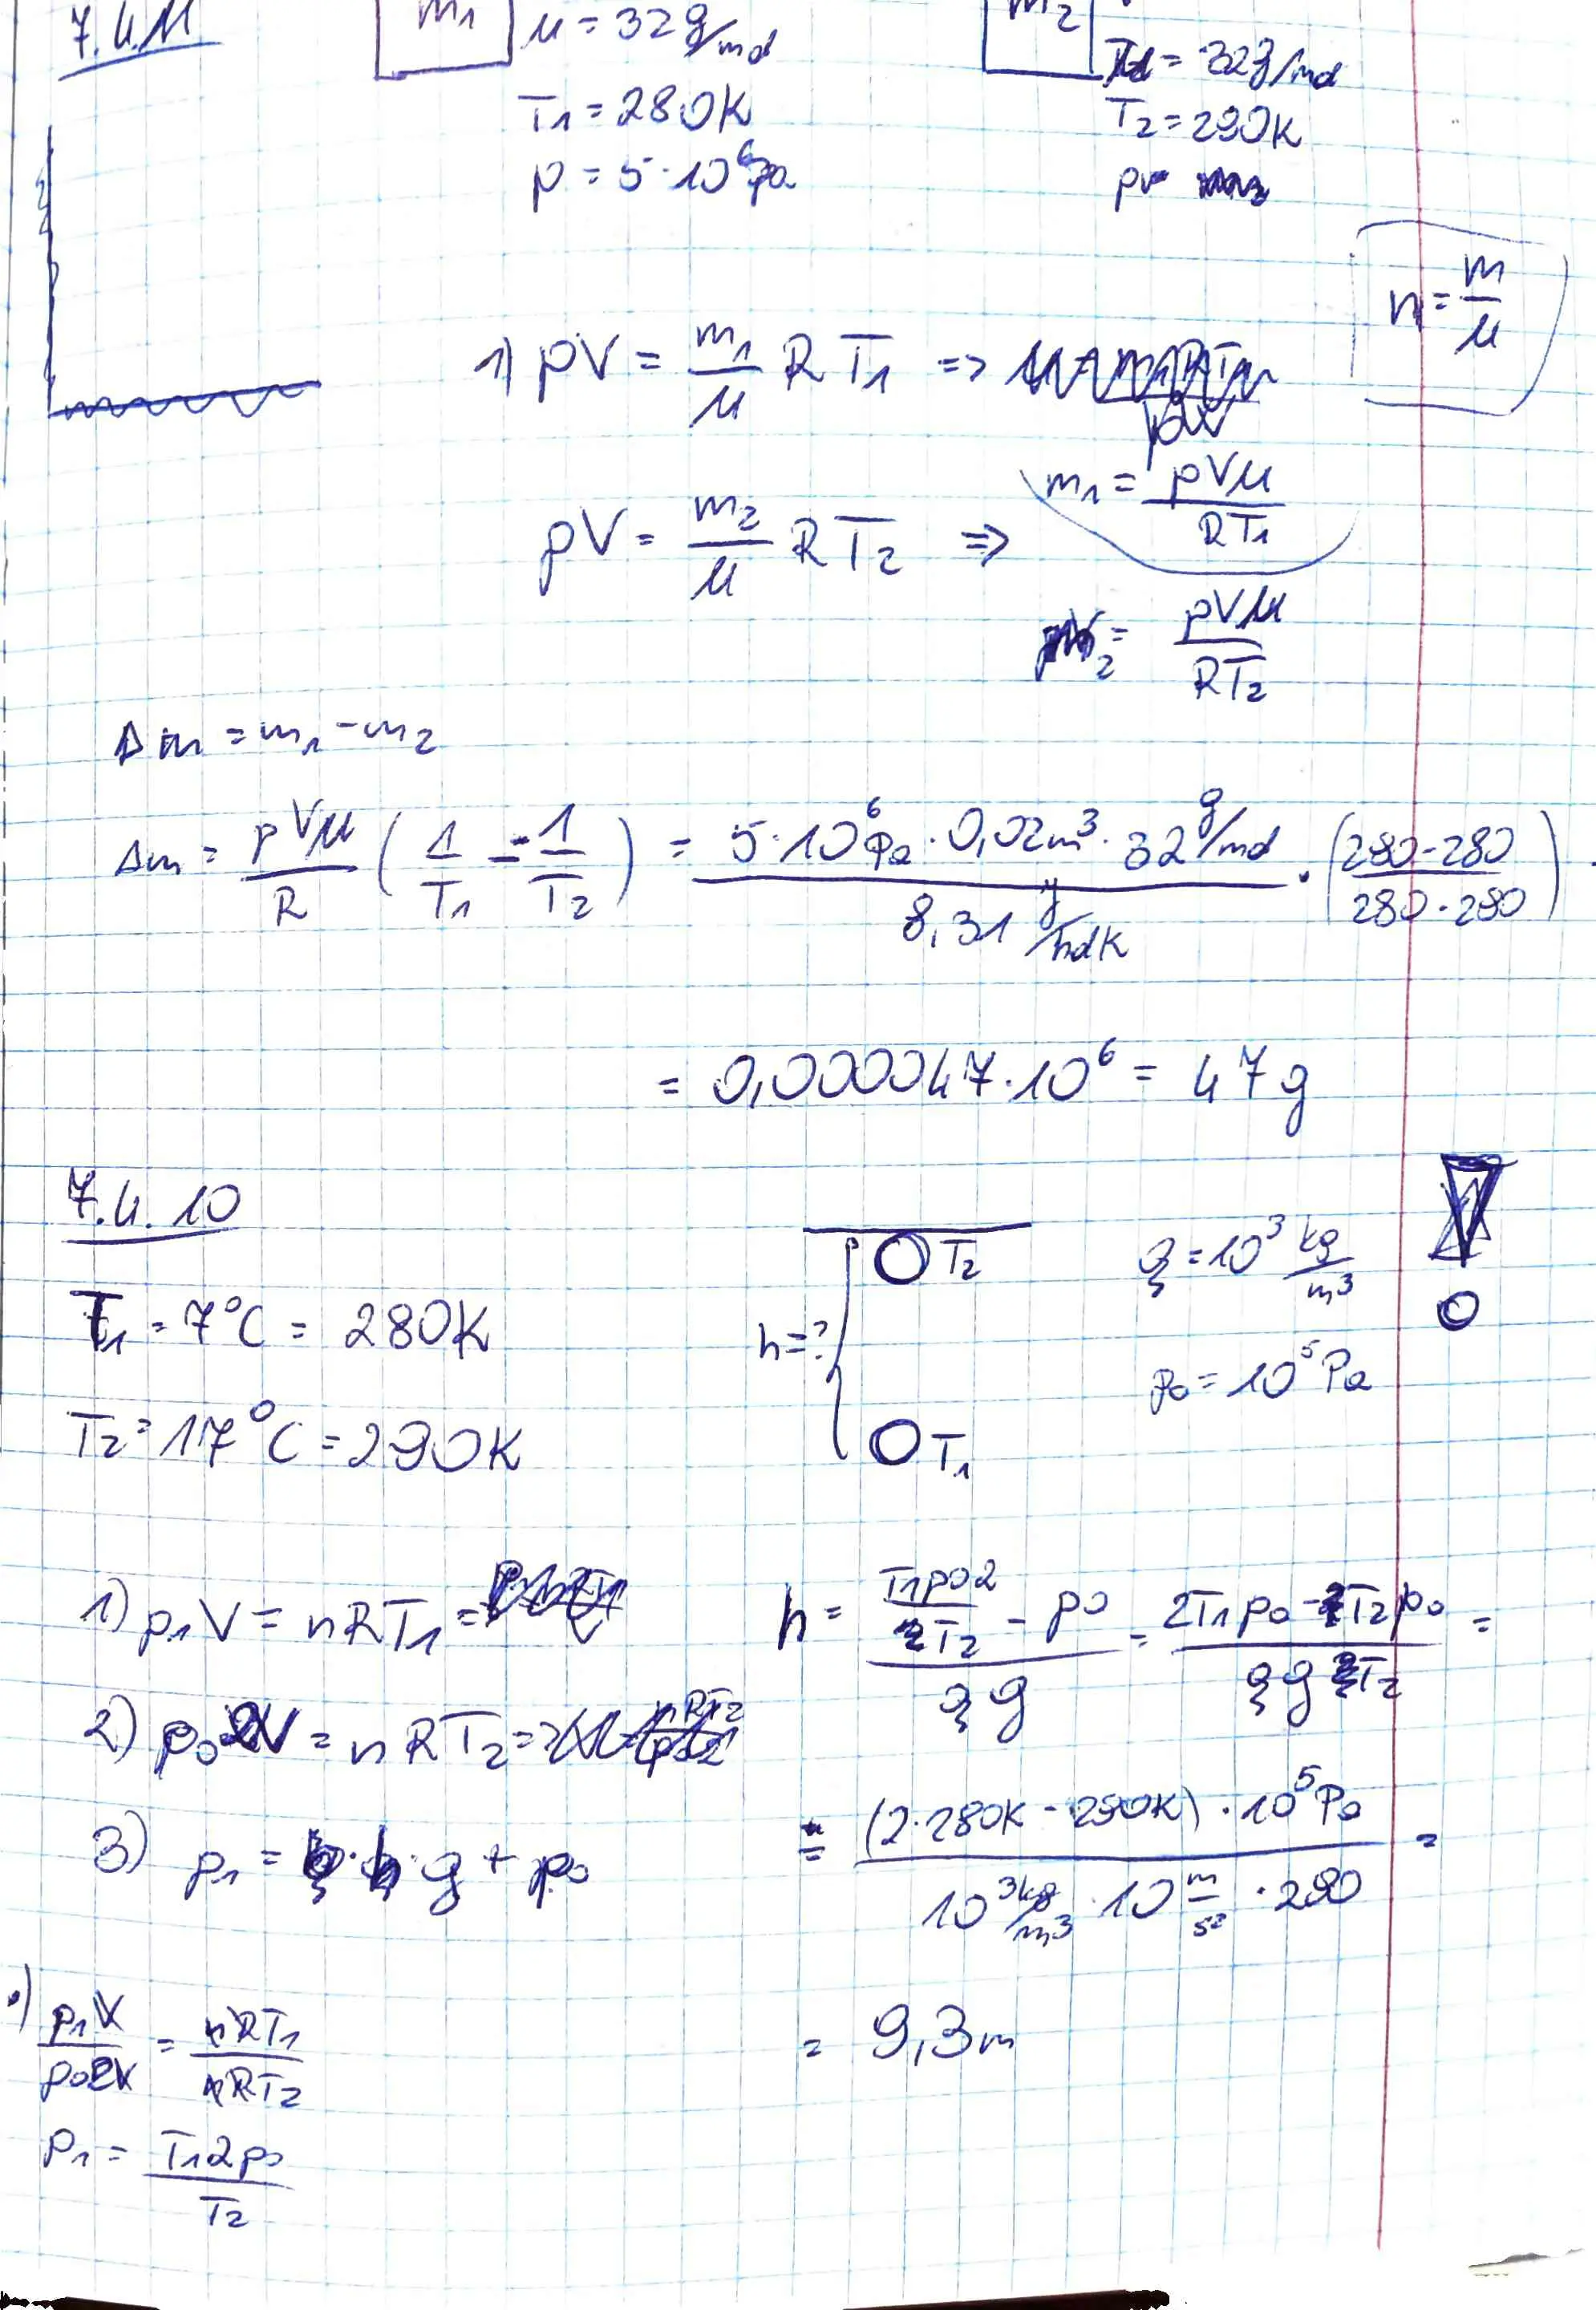 7.4.11 m1 μ = 32 g/mol m2 = 32g/mol
T1 = 280K T2 = 290K
p = 5·10^6 Pa
n = m/μ
1) pV = m1/μ RT1 =>
m1 = pVμ/RT1
pV = m2/μ RT2 =>
m2 = pVμ/RT2
Δm = m1 - m2
Δm = pVμ/R (1/T1 - 1/T2) = 5·10^6 Pa · 0,02m³ · 32 g/mol / 8,31 J/molK · (290-280 / 280·290)
= 0,000047·10^6 = 47g
7.4.10
T2 ρ = 10³ kg/m³
T1 = 7°C = 280K h = ? p0 = 10^5 Pa
T2 = 17°C = 290K T1
1) p1V = nRT1 =
2) p0 2V = nRT2 =>
3) p1 = ρ·h·g + p0
·) p1V/p02V = nRT1/nRT2
p1 = T12p0/T2
h = (T1p02/T2 - p0)/ρg = (2T1p0 - T2p0)/ρgT2 =
= (2·280K - 290K)·10^5 Pa / 10³ kg/m³ · 10 m/s² · 290 =
= 9,3m